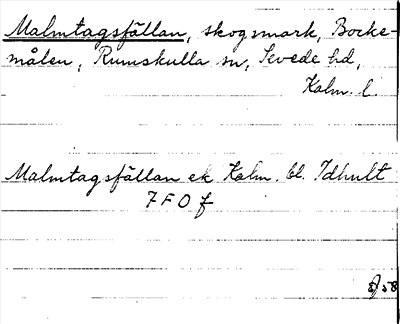 Malmtagsfällan, skogsmark, Bocke-
målen, Rumskulla sn, Sevede hd,
Kalm. l.
Malmtagsfällan ek Kalm. bl. Idhult
7 F 0 f
58